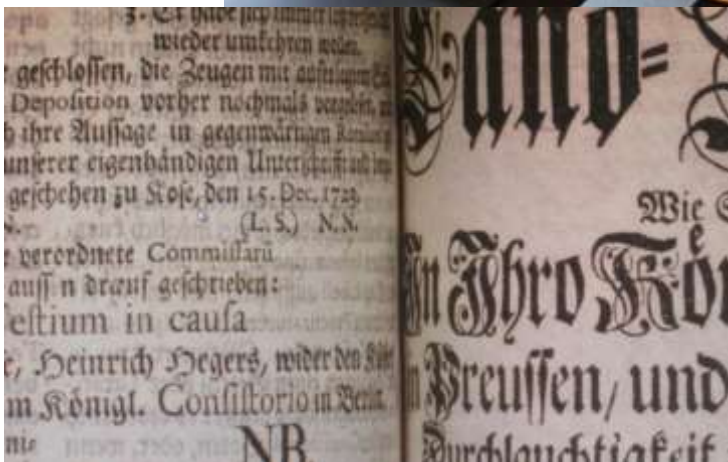 3. Er habe sich immer
wieder umkehren wollen.
geschlossen, die Zeugen mit
Deposition vorher nochmals
ihre Aussage in gegenwärtigen
unserer eigenhändigen Unterschrifft
geschehen zu Kose, den 15. Dec. 1723.
(L. S.) N. N.
verordnete Commissarii
auss n drauf geschrieben:
estium in causa
Heinrich Hegers, wider den
m Königl. Consistorio in Berlin
NB.
Land=
Wie
In Ihro Kön
in Preussen, und
Durchlauchtigkeit